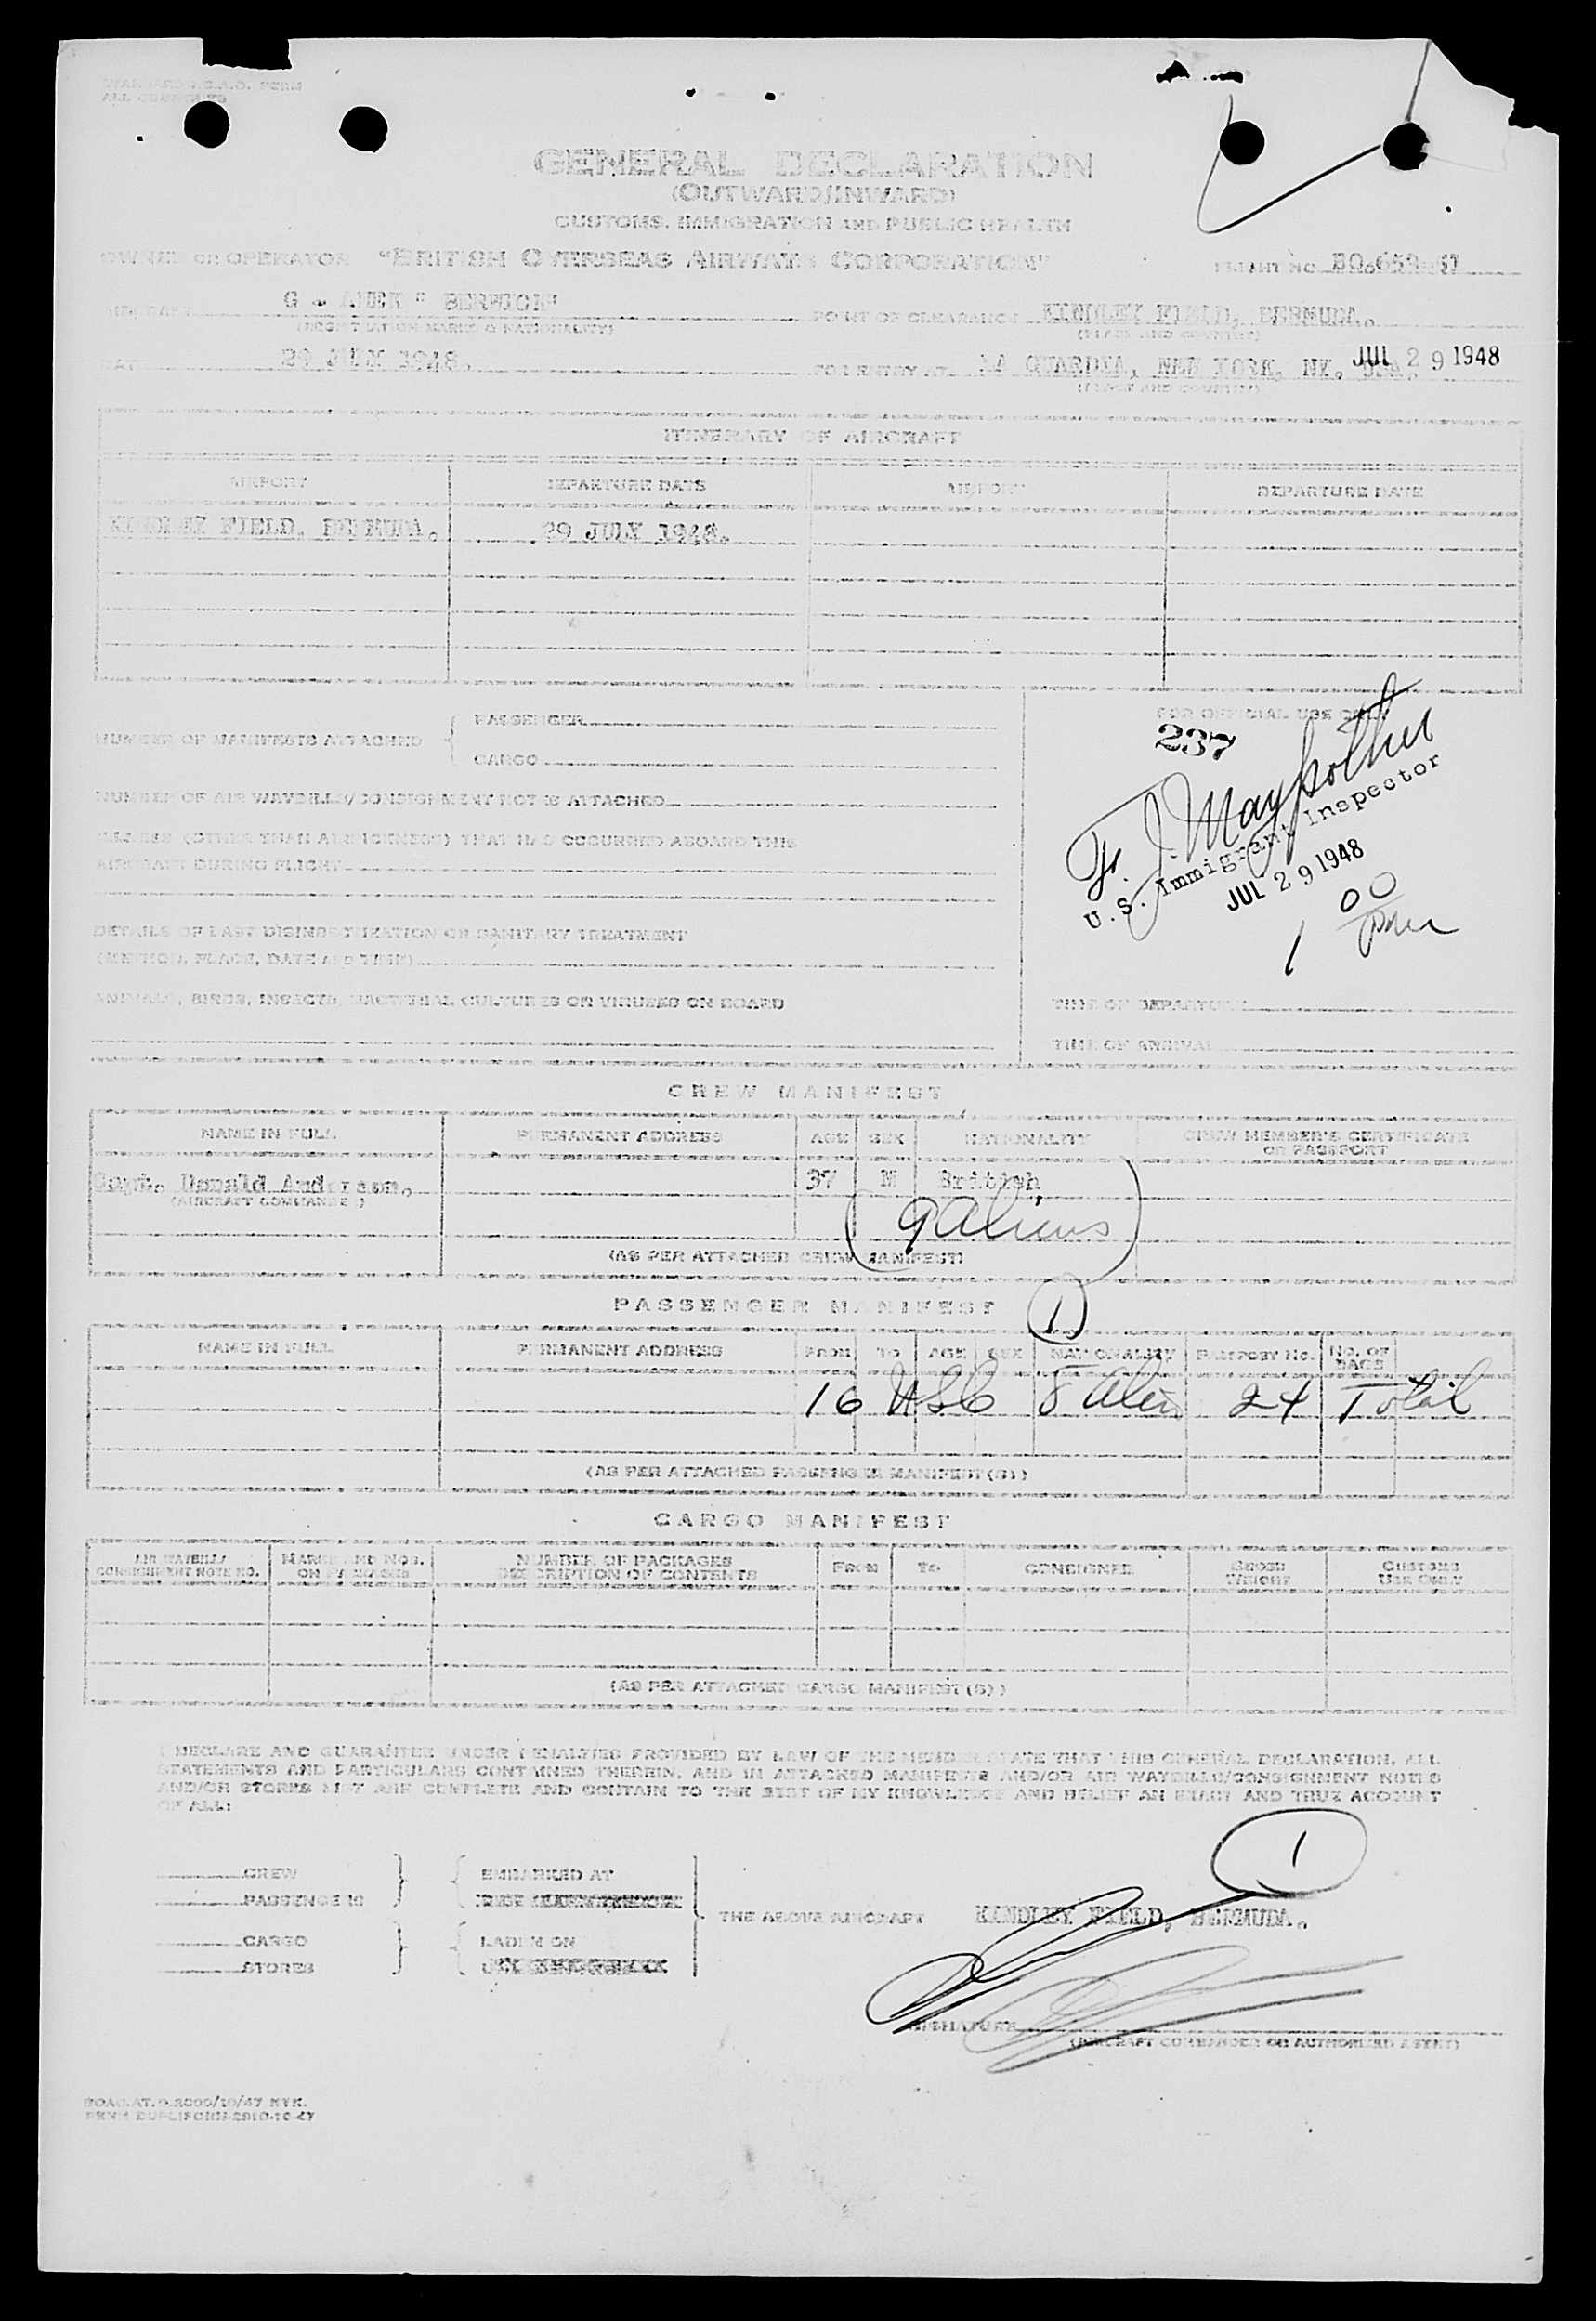 ALL
GENERAL DECLARATION
(OUTWARD/INWARD)
CUSTOMS, IMMIGRATION AND PUBLIC HEALTH
OWNER OR OPERATOR "BRITISH OVERSEAS AIRWAYS CORPORATION"
FLIGHT NO.
G -
POINT OF CLEARANCE KINDLEY FIELD, BERMUDA.
(PLACE AND COUNTRY)
29 JULY 1948.
FOR ENTRY AT LA GUARDIA, NEW YORK, NY. JUL 29 1948
(PLACE AND COUNTRY)
ITINERARY OF AIRCRAFT
AIRPORT DEPARTURE DATE AIRPORT DEPARTURE DATE
KINDLEY FIELD, BERMUDA. 29 JULY 1948.
NUMBER OF MANIFESTS ATTACHED
PASSENGER
CARGO
FOR OFFICIAL USE ONLY
237
NUMBER OF AIR WAYBILLS/CONSIGNMENT NOTES ATTACHED
ILLNESS (OTHER THAN AIR SICKNESS) THAT HAS OCCURRED ABOARD THIS
AIRCRAFT DURING FLIGHT
U.S. Immigrant Inspector
JUL 29 1948
1 00
DETAILS OF LAST DISINSECTIZATION OR SANITARY TREATMENT
(METHOD, PLACE, DATE AND TIME)
ANIMALS, BIRDS, INSECTS, BACTERIAL CULTURES OR VIRUSES ON BOARD
TIME OF DEPARTURE
TIME OF ARRIVAL
CREW MANIFEST
NAME IN FULL PERMANENT ADDRESS AGE SEX NATIONALITY CREW MEMBER'S CERTIFICATE
OR PASSPORT
Capt. Donald Anderson. 37 M British
(AIRCRAFT COMMANDER)
9 Aliens
(AS PER ATTACHED CREW MANIFEST)
PASSENGER MANIFEST 1
NAME IN FULL PERMANENT ADDRESS FROM TO AGE SEX NATIONALITY PASSPORT No. No. OF
BAGS
16 USC 8 Alien 24 Total
(AS PER ATTACHED PASSENGER MANIFEST(S))
CARGO MANIFEST
AIR WAYBILL/ MARKS AND NOS. NUMBER OF PACKAGES FROM TO CONSIGNEE GROSS CUSTOMS
CONSIGNMENT NOTE NO. ON PACKAGES DESCRIPTION OF CONTENTS WEIGHT USE ONLY
(AS PER ATTACHED CARGO MANIFEST(S))
I DECLARE AND GUARANTEE UNDER PENALTIES PROVIDED BY LAW OF THE MEMBER STATE THAT THIS GENERAL DECLARATION, ALL
STATEMENTS AND PARTICULARS CONTAINED THEREIN, AND IN ATTACHED MANIFESTS AND/OR AIR WAYBILLS/CONSIGNMENT NOTES
AND/OR STORES LIST ARE COMPLETE AND CONTAIN TO THE BEST OF MY KNOWLEDGE AND BELIEF AN EXACT AND TRUE ACCOUNT
OF ALL:
1
CREW EMBARKED AT
PASSENGERS
THE ABOVE AIRCRAFT KINDLEY FIELD, BERMUDA.
CARGO LADEN ON
STORES
SIGNATURE
(AIRCRAFT COMMANDER OR AUTHORIZED AGENT)